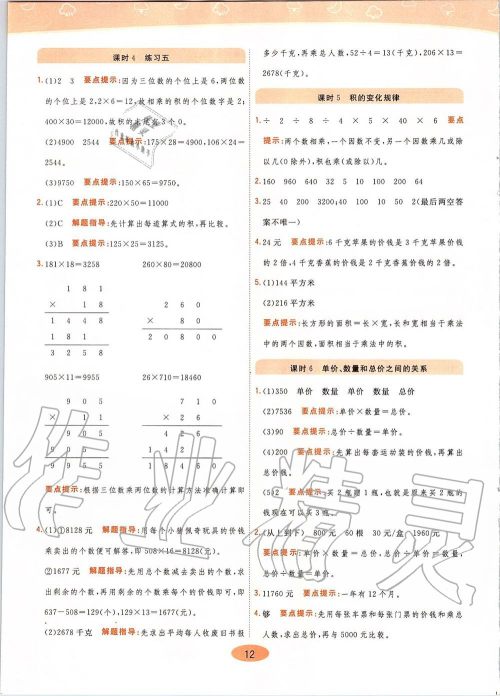 课时4 练习五
1.(1)2 3 要点提示:因为三位数的个位上是6,两位数
的个位上是2,2×6=12,故相乘的积的个位数字是2;
400×30=12000,故积的末尾有3个0。
(2)4900 2544 要点提示:175×28=4900,106×24=
2544。
(3)9750 要点提示:150×65=9750。
2.(1)C 要点提示:220×50=11000
(2)C 解题指导:先计算出每道算式的积,再比较。
(3)B 要点提示:125×25=3125。
3.181×18=3258 260×80=20800
1 8 1
× 1 8
1 4 4 8
1 8 1
3 2 5 8
2 6 0
× 8 0
2 0 8 0 0
905×11=9955 26×710=18460
9 0 5
× 1 1
9 0 5
9 0 5
7 1 0
× 2 6
4 2 6
1 4 2
要点提示:根据三位数乘两位数的计算方法准确计算即
可。
4.(1)①8128元 解题指导:用每个小猪佩奇玩具的价钱
乘卖出的个数便可解答,即508×16=8128(元)。
②1677元 解题指导:先用总个数减去卖出的个数,求
出剩余的个数,再用剩余的个数乘每个的价钱即可,即
637-508=129(个),129×13=1677(元)。
(2)2678千克 解题指导:先求出平均每人收废旧书报
多少千克,再乘总人数,52÷4=13(千克),206×13=
2678(千克)。
课时5 积的变化规律
1.÷ 2 ÷ 8 ÷ 4 × 5 × 40 × 6 要点
提示:两个数相乘,一个因数不变,另一个因数乘几或除
以几(0除外),积也乘(或除以)几。
2.160 960 640 32 5 10 100 200 64
3.25 40 200 3200,40 100 10 50 2(最后两空答
案不唯一)
4.24元 要点提示:6千克苹果的价钱是3千克苹果价钱
的2倍,4千克香蕉的价钱是2千克香蕉价钱的2倍。
5.(1)144平方米
(2)216平方米
要点提示:长方形的面积=长×宽,长和宽相当于乘法
中的两个因数,面积相当于乘法中的积。
课时6 单价、数量和总价之间的关系
1.(1)350 单价 数量 单价 数量 总价
(2)7536 要点提示:单价×数量=总价。
(3)90 要点提示:总价÷数量=单价。
(4)200 要点提示:先算出每套运动装的价钱,再算出
总价钱。
(5)2 要点提示:买2瓶赠1瓶,也就是原来买2瓶的
钱现在可以买3瓶。
2.(从上到下) 800元 60根 30元/盒 1960元
要点提示:单价×数量=总价,总价÷单价=数量,
总价÷数量=单价。
3.11760元 要点提示:一年有12个月。
4.够 要点提示:先用每张车票和每张门票的价钱和乘总
人数,求出总价,再与5000元比较。
12
作业精灵